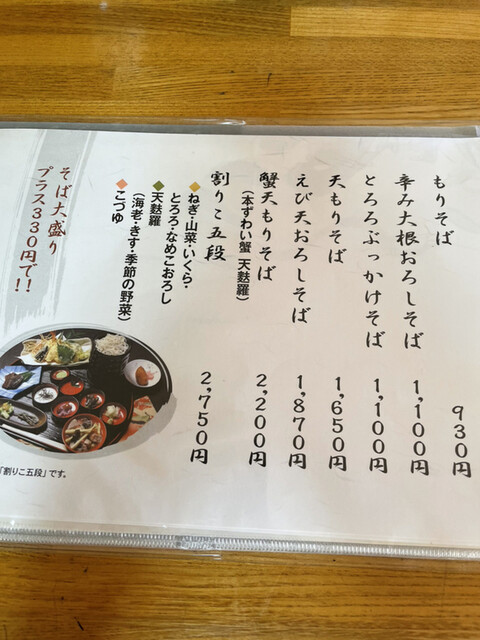 もりそば 930円
辛み大根おろしそば 1,100円
とろろぶっかけそば 1,100円
天もりそば 1,650円
えび天おろしそば 1,870円
蟹天もりそば 2,200円
(本ずわい蟹 天麩羅)
割りこ五段 2,750円
◆ねぎ・山菜・いくら・
とろろ・なめこおろし
◆天麩羅
(海老・きす・季節の野菜)
◆こづゆ
そば大盛り
プラス330円で!!
「割りこ五段」です。